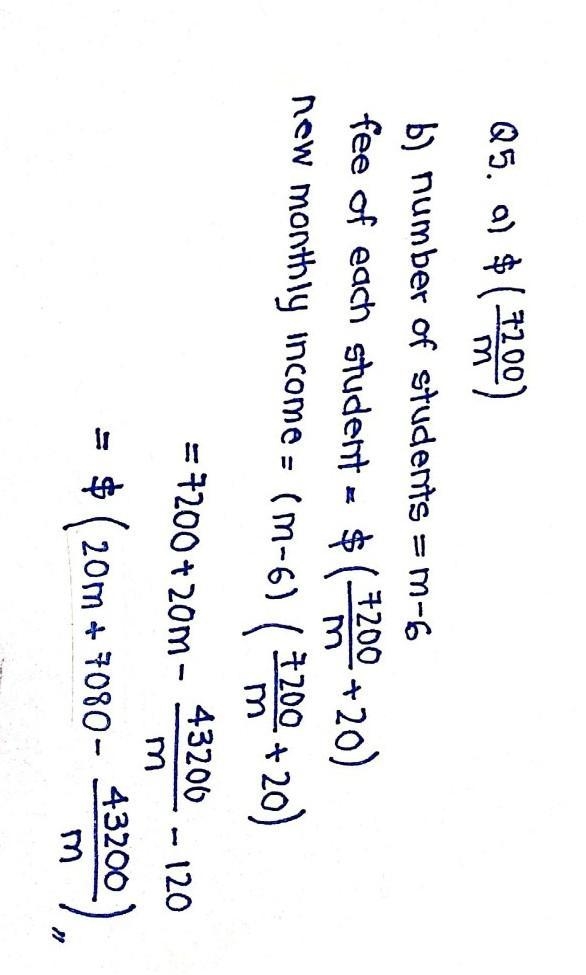 Q5. a) $ (7200/m)
b) number of students = m-6
fee of each student = $ (7200/m + 20)
new monthly income = (m-6) (7200/m + 20)
= 7200 + 20m - 43200/m - 120
= $ (20m + 7080 - 43200/m) 〃